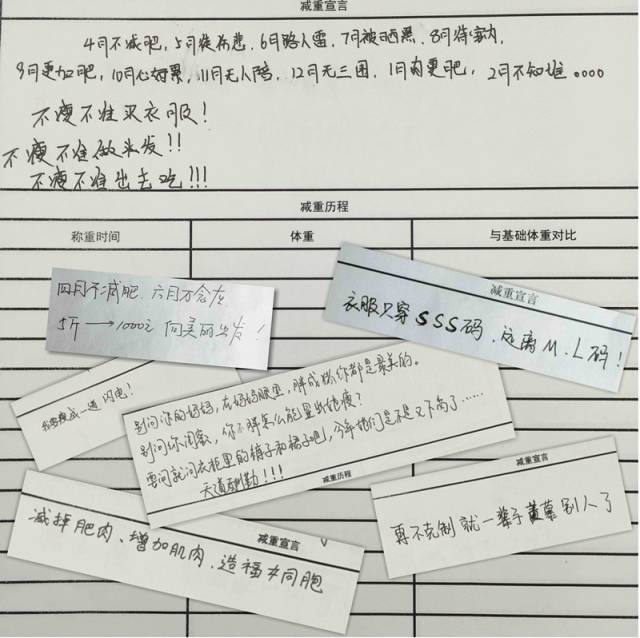 减重宣言
4月不减肥,5月徒伤悲,6月路人雷,7月被晒黑,8月待室内,
9月更加肥,10月心如累,11月无人陪,12月无三围,1月肉更肥,2月不知谁。。。。
不瘦不准买衣服!
不瘦不准做头发!!
不瘦不准出去吃!!!
减重历程
称重时间 体重 与基础体重对比
四月不减肥,六月万念灰
5斤→1000元 向美丽出发!
减重宣言
衣服只穿SSS码,远离M.L码!
我要瘦成一道闪电!
别问你的妈妈,在妈妈眼里,胖成啥你都是最美的。
别问你闺蜜,你不胖怎么能显出她瘦?
要问就问衣柜里的裤子和裙子吧,今年她们是不是又下岗了……
天道酬勤!!!
减重历程
减重宣言
再不克制就一辈子
别人了
减重宣言
减掉肥肉、增加肌肉、造福女同胞